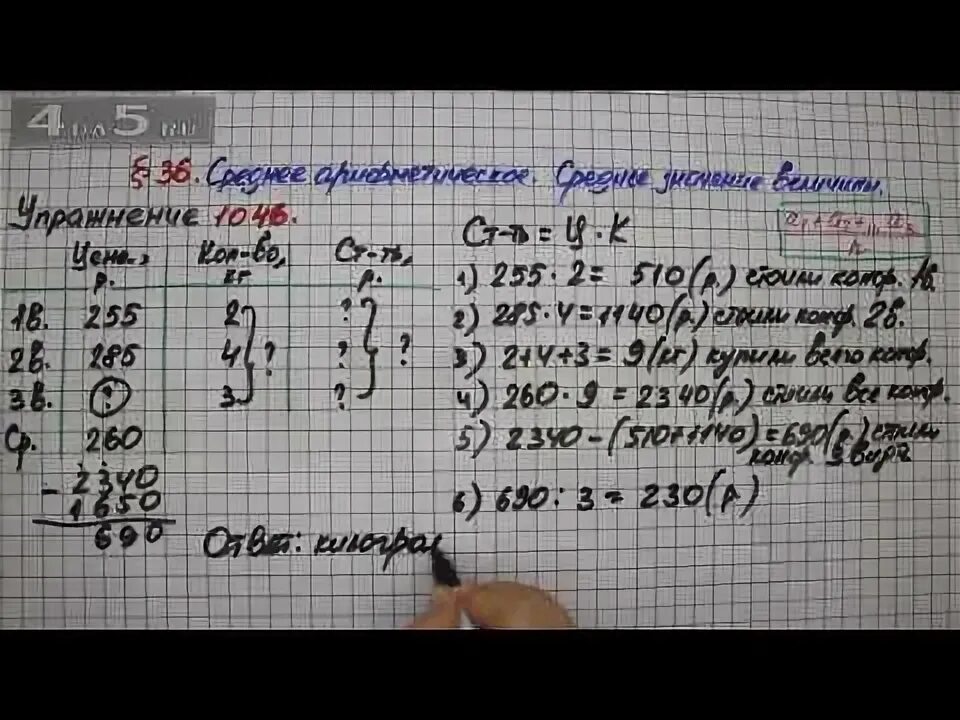 4 для 5 ru
§ 36. Среднее арифметическое. Среднее значение величины.
Упражнение 1046.
Цена, р. Кол-во, кг Ст-ть, р.
1в. 255 2 ?
2в. 285 4 ? ? ?
3в. ? 3 ?
Ср. 260
- 2340
1650
690
Ст-ть = Ц · К
1) 255 · 2 = 510 (р.) стоили конф. 1в.
2) 285 · 4 = 1140 (р.) стоили конф. 2в.
3) 2+4+3 = 9 (кг) купили всего конф.
4) 260 · 9 = 2340 (р.) стоили все конф.
5) 2340 - (510+1140) = 690 (р.) стоили
конф. 3 вида
6) 690 : 3 = 230 (р.)
Ответ: килограм